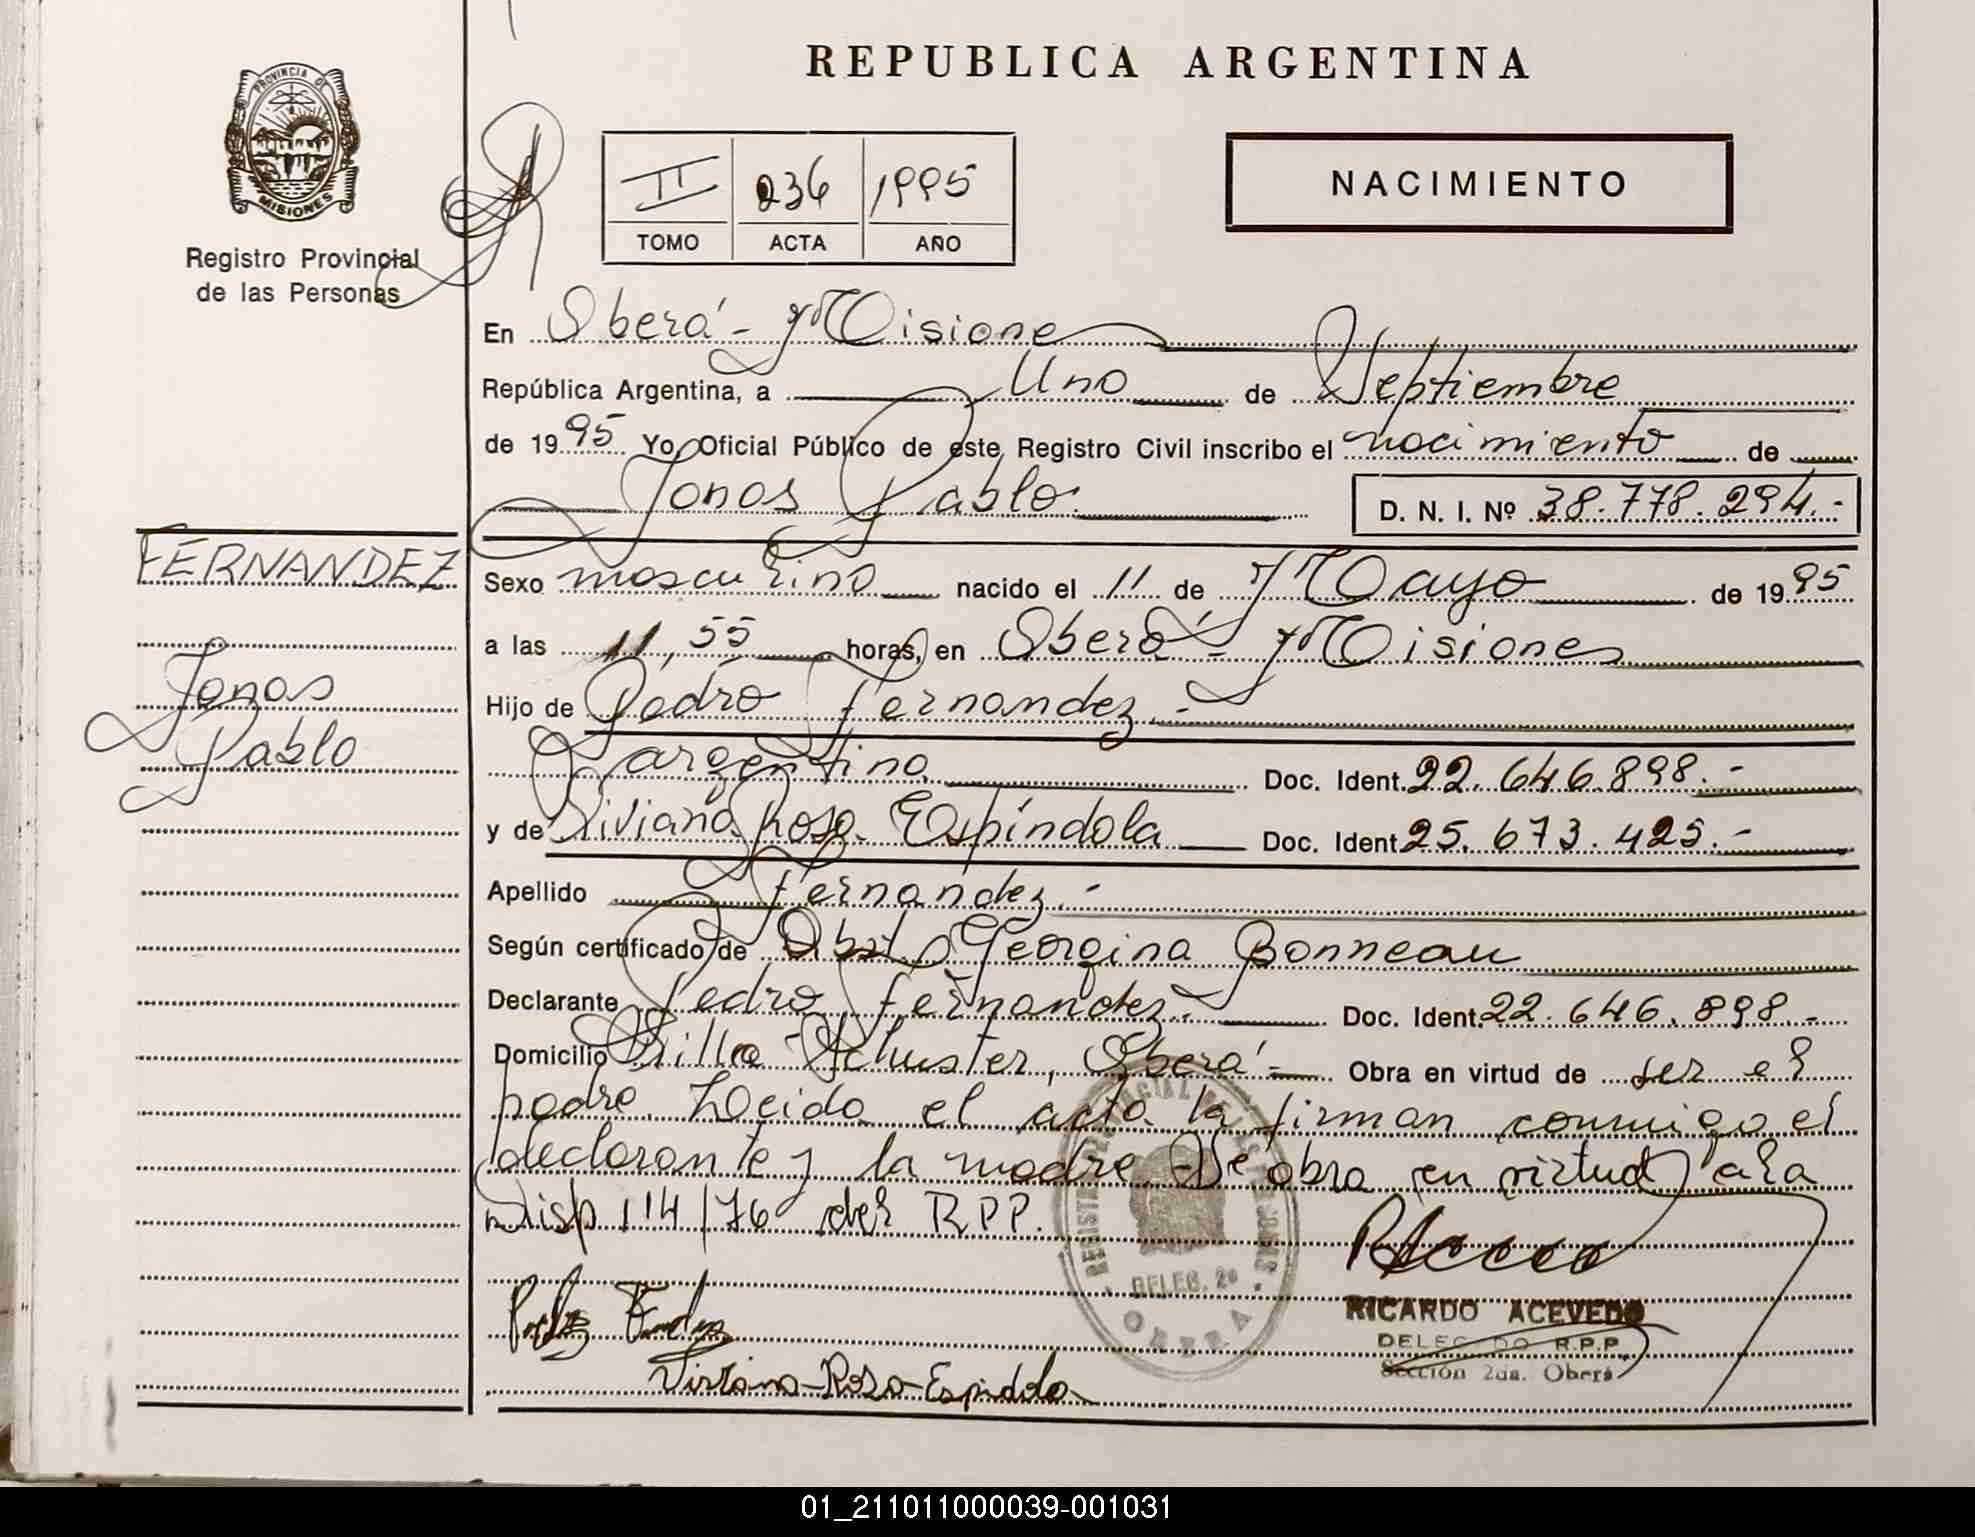 REPUBLICA ARGENTINA
PROVINCIA DE
MISIONES
Registro Provincial
de las Personas
II 236 1995
TOMO ACTA AÑO
NACIMIENTO
En Oberá - Misiones
República Argentina, a Uno de Septiembre
de 1995 Yo, Oficial Público de este Registro Civil inscribo el nacimiento de
Jonas Pablo. D. N. I. Nº 38.778.294.-
FERNANDEZ
Jonas
Pablo
Sexo masculino nacido el 11 de Mayo de 1995
a las 11,55 horas, en Oberá - Misiones
Hijo de Pedro Fernandez.-
argentino Doc. Ident. 22.646.898.-
y de Viviana Rosa Espíndola Doc. Ident. 25.673.425.-
Apellido Fernandez.-
Según certificado de Obst. Georgina Bonneau
Declarante Pedro Fernandez.- Doc. Ident. 22.646.898.-
Domicilio Villa Schuster, Oberá - Obra en virtud de ser el
padre. Leída el acta la firman conmigo el
declarante y la madre. Se obra en virtud a la
Disp 114/76 del R.P.P.
DELEG. 2ª
OBERA
RICARDO ACEVEDO
DELEGADO R.P.P.
Sección 2da. Oberá
Viviana Rosa Espindola
01_211011000039-001031